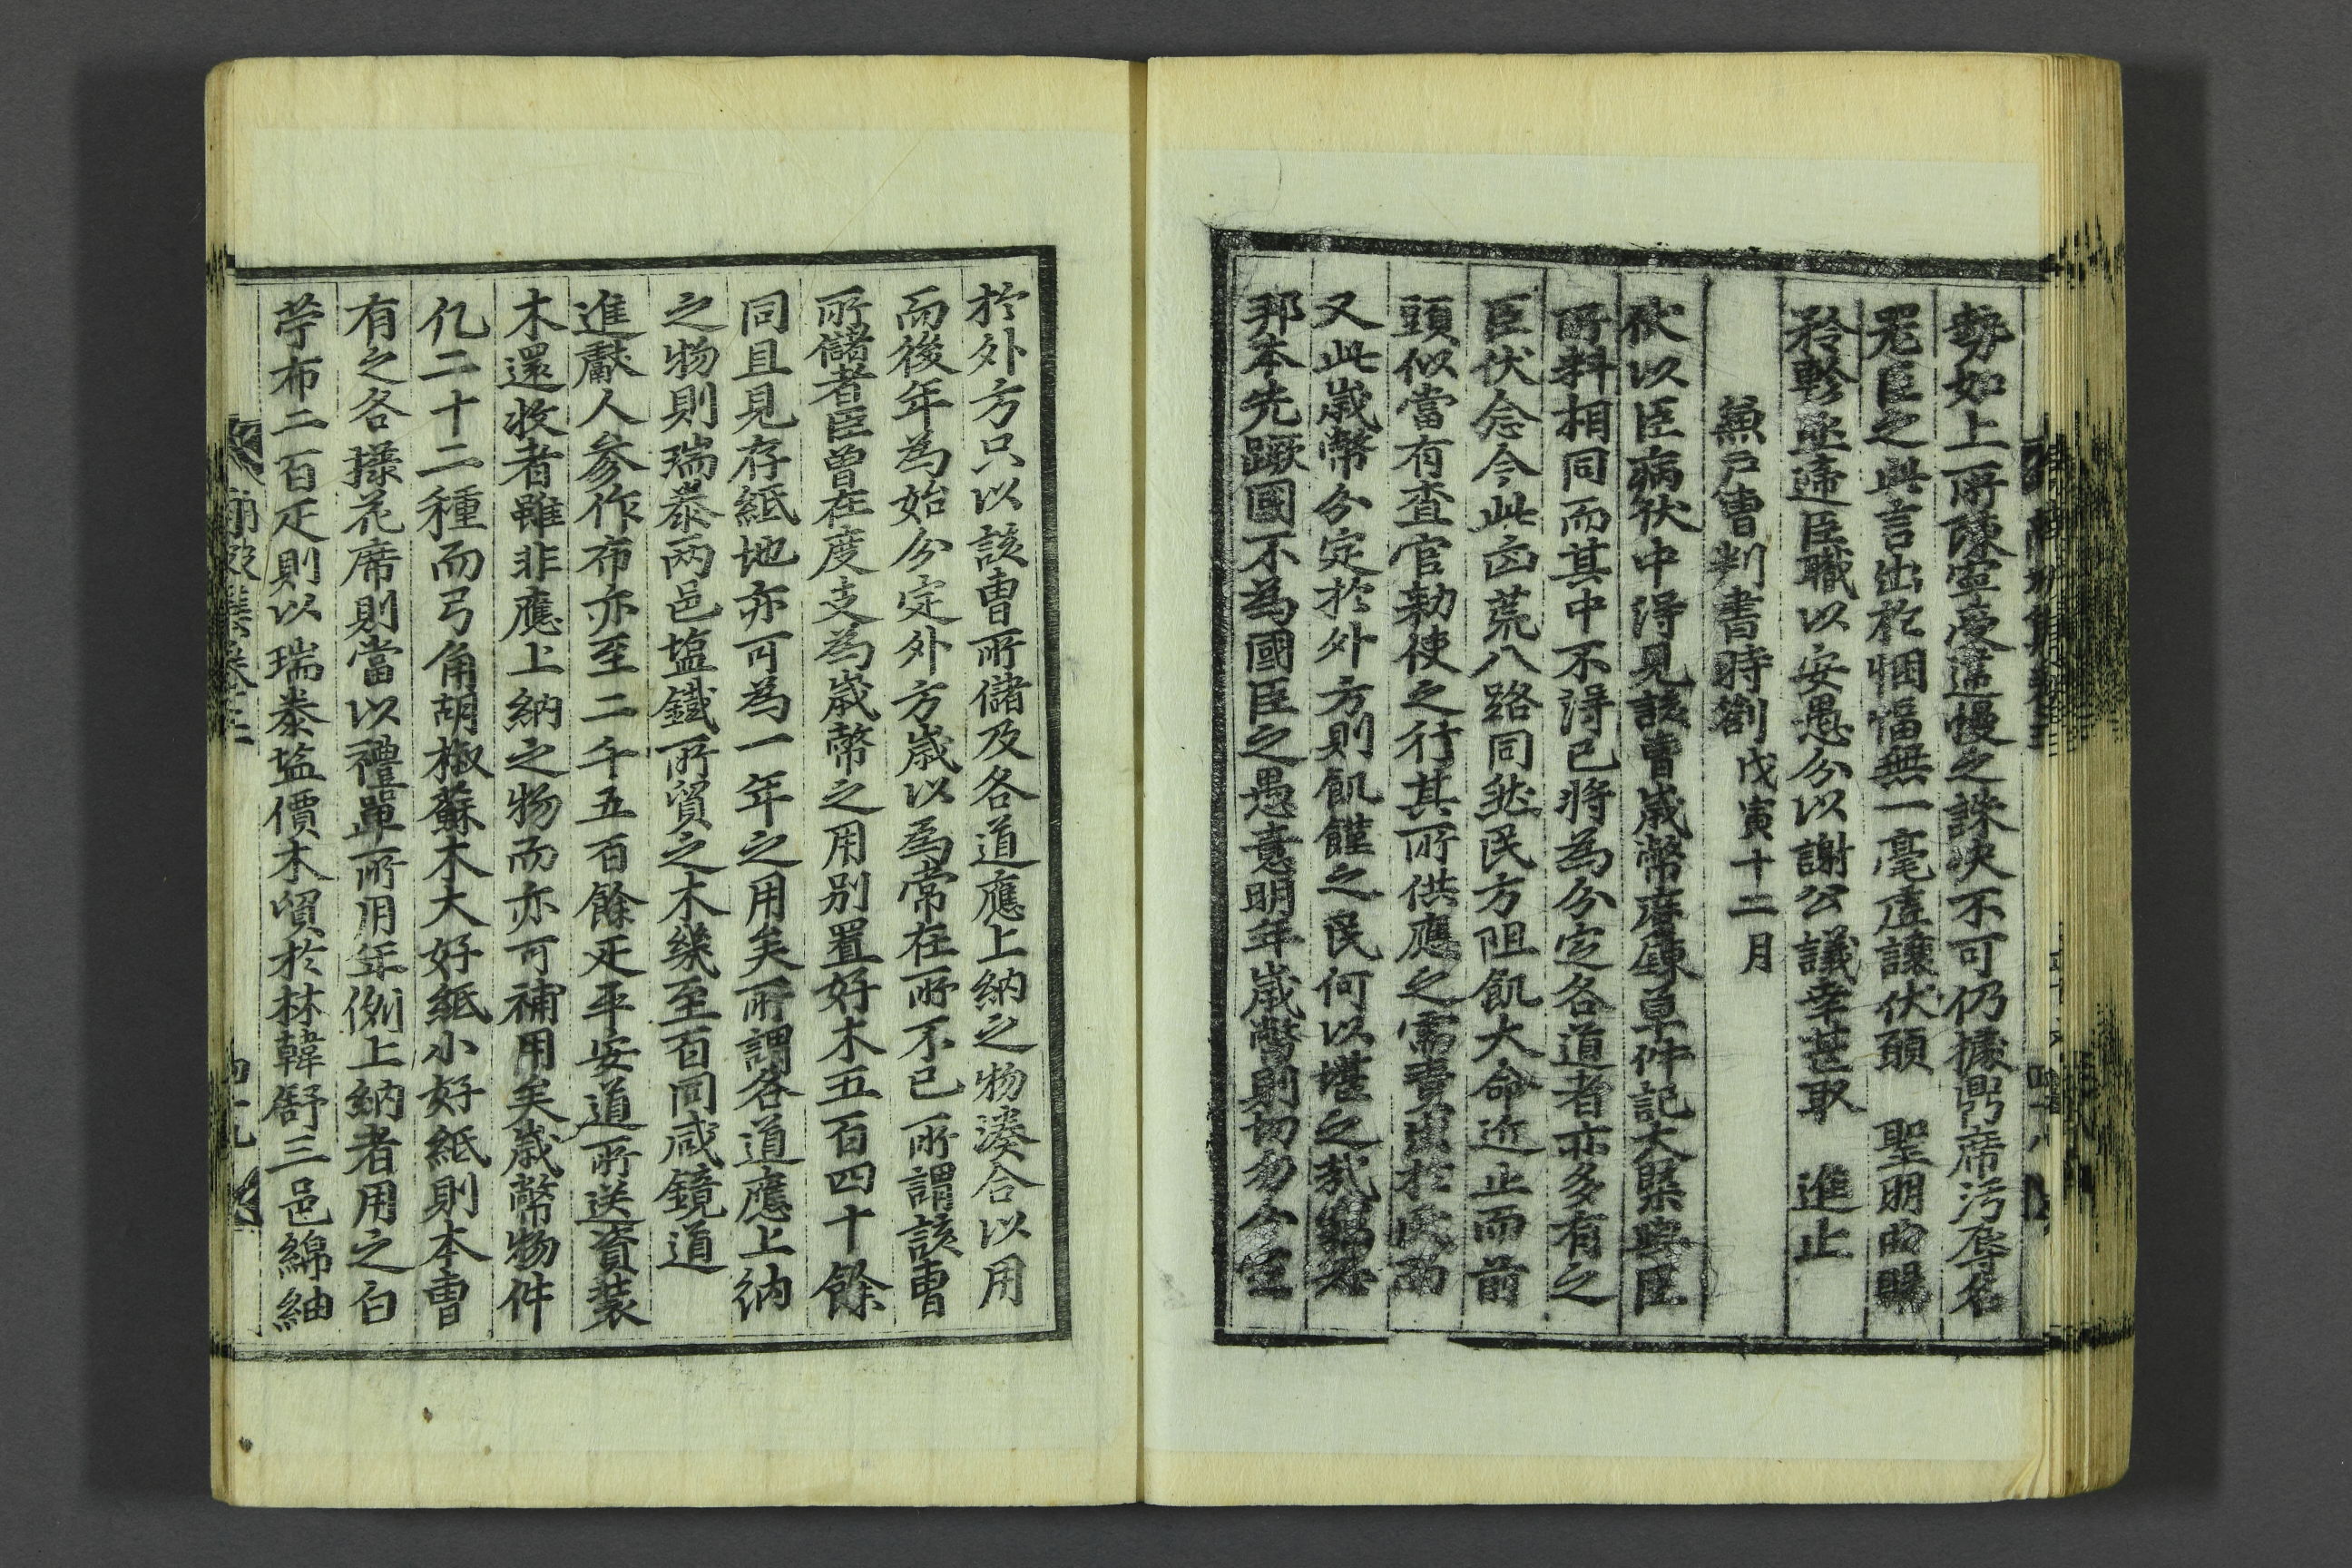 勢如上所陳寧受逋慢之誅決不可仍據鼎席汚辱名
器臣之此言出於悃愊無一毫虛讓伏願 聖明曲賜
矜軫亟遞臣職以安愚分以謝公議幸甚取 進止
兼戶曹判書時箚 戊寅十二月
伏以臣病伏中得見該曹歲幣磨鍊草件記大槩與臣
所料相同而其中不得已將為分定各道者亦多有之
臣伏念今此凶荒八路同然民方阻飢大命近止而前
頭似當有査官勅使之行其所供應之需責出於民而
又此歲幣分定於外方則飢饉之民何以堪之哉
邦本先蹶國不為國臣之愚意明年歲幣則切勿分定
於外方只以該曹所儲及各道應上納之物湊合以用
而後年為始分定外方歲以為常在所不已所謂該曹
所儲者臣曾在度支為歲幣之用別置好木五百四十餘
同且見存紙地亦可為一年之用矣所謂各道應上納
之物則瑞泰兩邑塩鐵所貿之木幾至百同咸鏡道
進獻人參作布亦至二千五百餘疋平安道所送資裝
木還收者雖非應上納之物而亦可補用矣歲幣物件
凡二十二種而弓角胡椒蘇木大好紙小好紙則本曹
有之各㨾花席則當以禮單所用年例上納者用之白
苧布二百疋則以瑞泰塩價木貿於林韓舒三邑綿紬